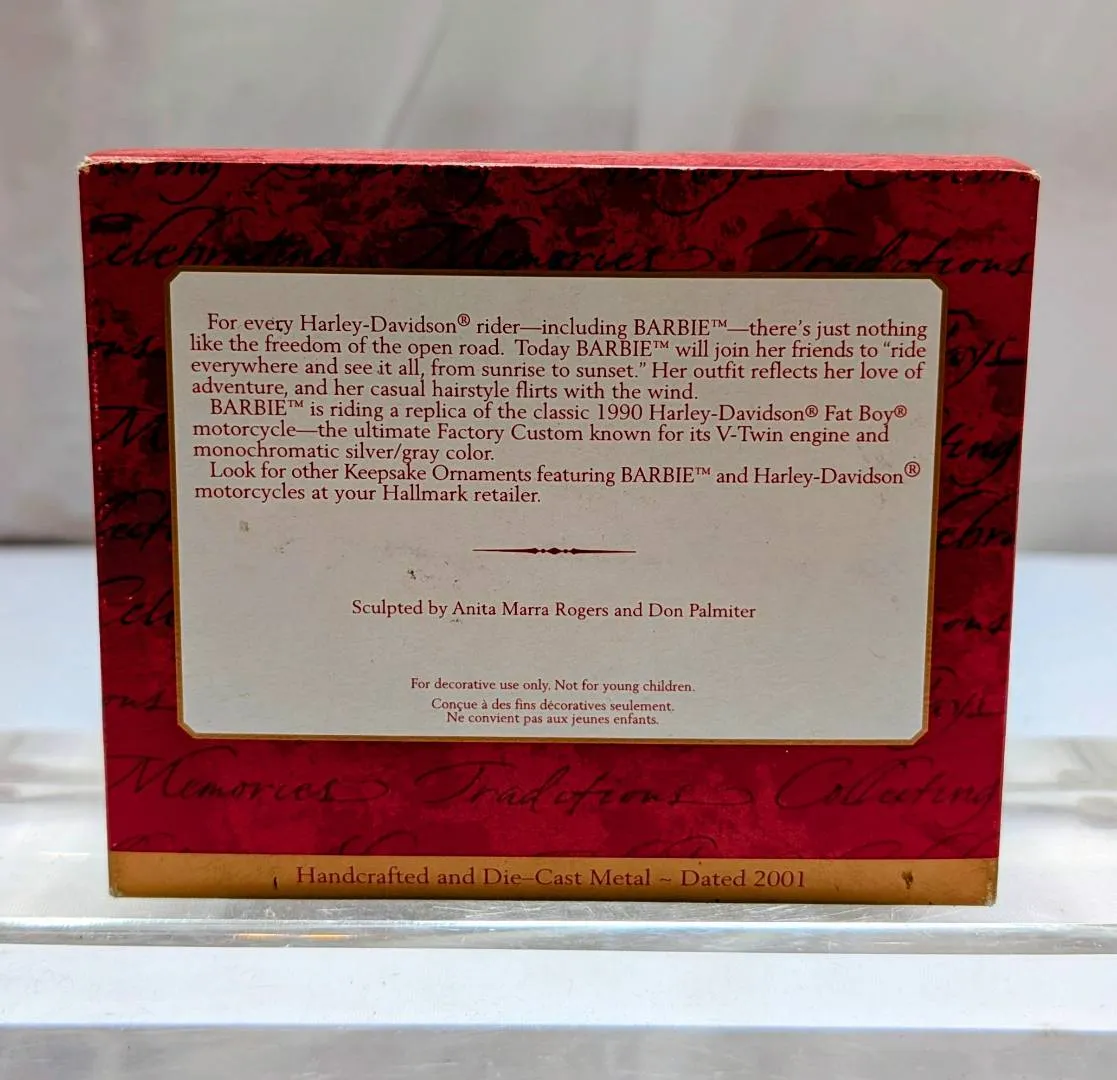 Celebrating Memories Traditions
For every Harley-Davidson® rider—including BARBIE™—there's just nothing
like the freedom of the open road. Today BARBIE™ will join her friends to "ride
everywhere and see it all, from sunrise to sunset." Her outfit reflects her love of
adventure, and her casual hairstyle flirts with the wind.
BARBIE™ is riding a replica of the classic 1990 Harley-Davidson® Fat Boy®
motorcycle—the ultimate Factory Custom known for its V-Twin engine and
monochromatic silver/gray color.
Look for other Keepsake Ornaments featuring BARBIE™ and Harley-Davidson®
motorcycles at your Hallmark retailer.
Sculpted by Anita Marra Rogers and Don Palmiter
For decorative use only. Not for young children.
Conçue à des fins décoratives seulement.
Ne convient pas aux jeunes enfants.
Memories Traditions Collecting
Handcrafted and Die-Cast Metal ~ Dated 2001